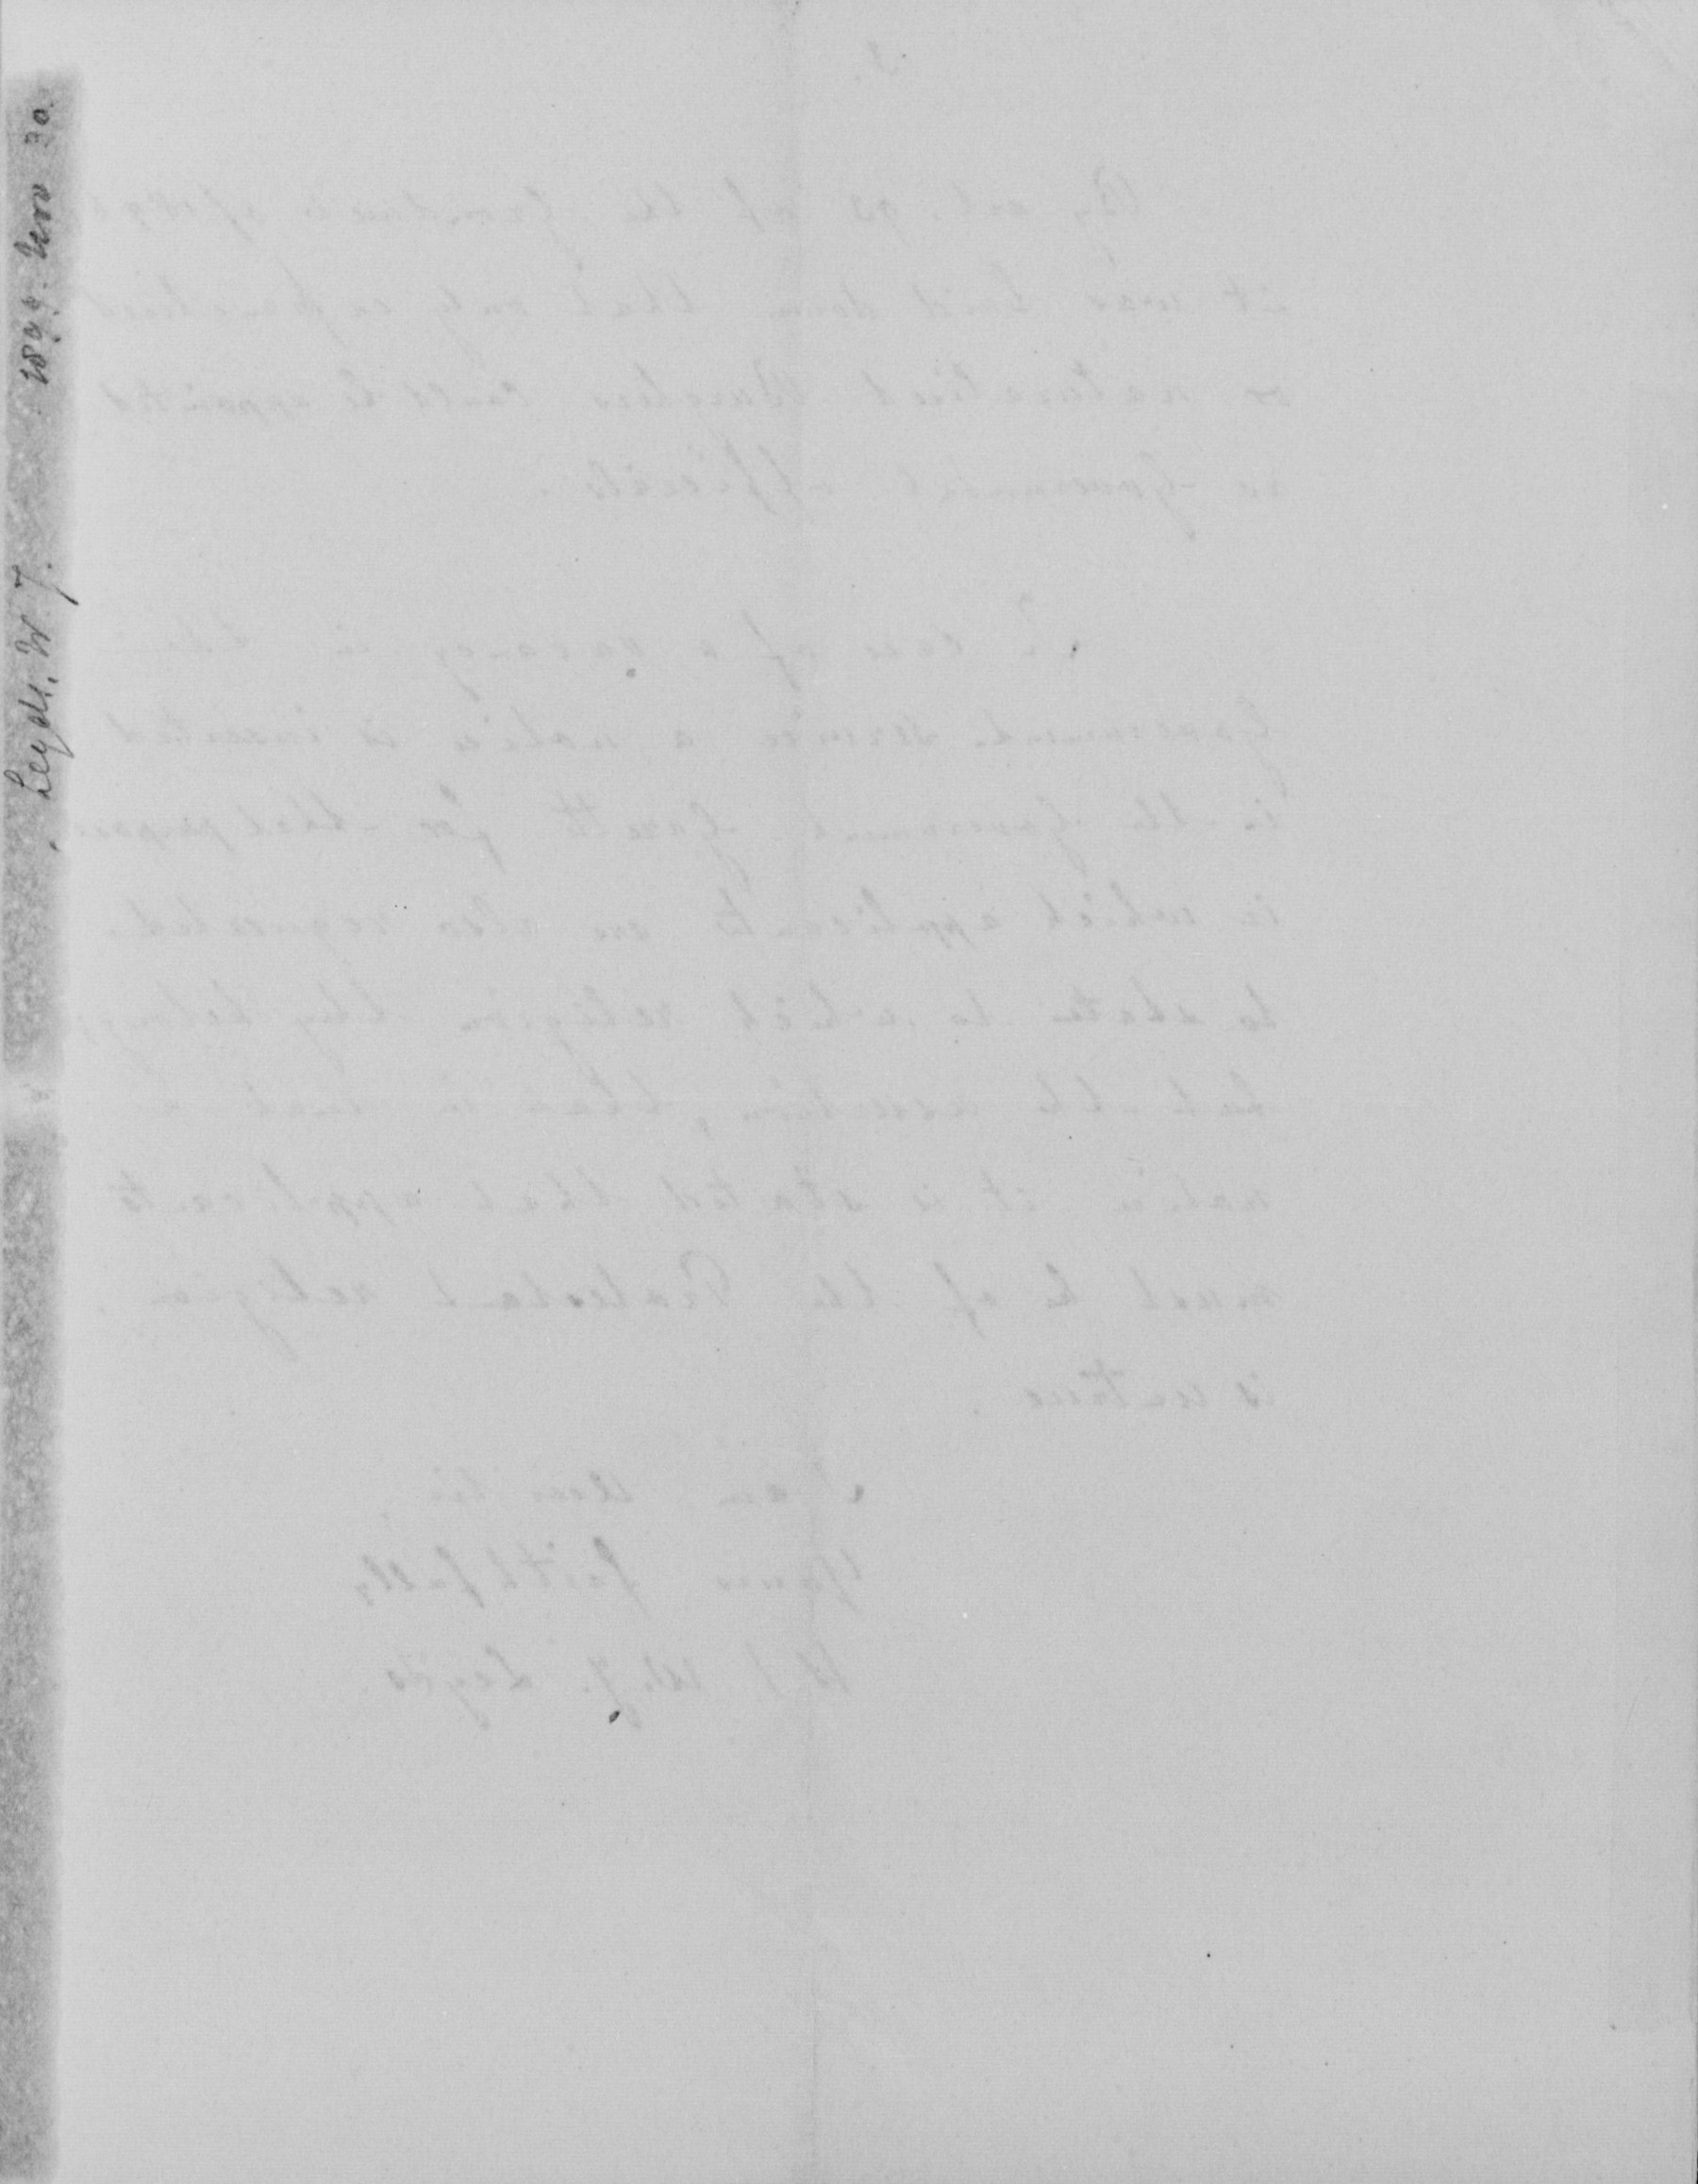 Leyds. W. J. 1899. Nov 30.
3.
By art. of the of
it was laid down that only enfranchised
or naturalised Burghers could be appointed
as Government officials.
In case of a vacancy in the
Government service a notice is inserted
in the Government Gazette for that purpose
in which applicants are also requested
to state to which religion they belong,
but the assertion, that in such a
notice it is stated that applicants
must be of the Protestant religion,
is untrue.
I am there
Yours faithfully
W. J. Leyds.